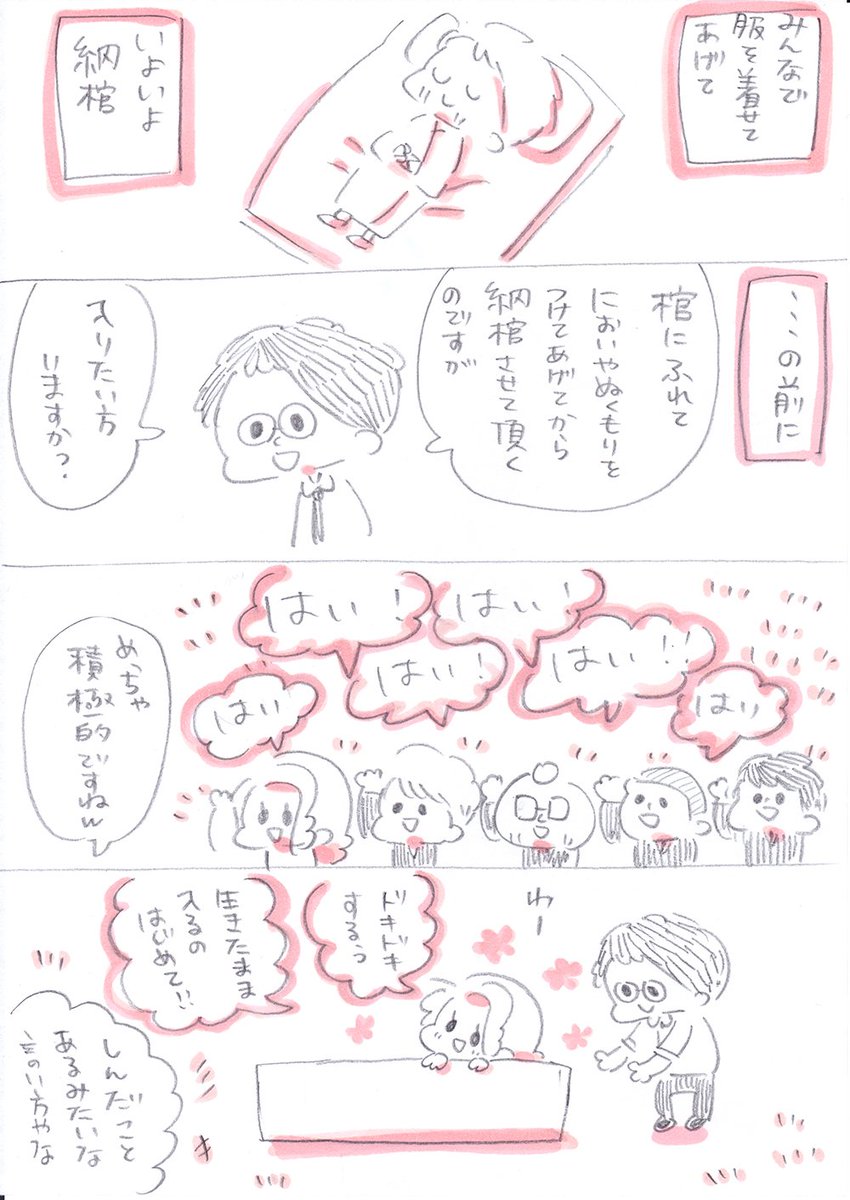 みんなで
服を着せて
あげて
いよいよ
納棺
…の前に
棺にふれて
においやぬくもりを
つけてあげてから
納棺させて頂く
のですが
入りたい方
いますか?
はい!
はい!
はい!!
はい!
はい
はい
めっちゃ
積極的ですねw
わー
ドキドキ
するぅ
生きたまま
入るの
はじめて!!
しんだこと
あるみたいな
言い方やな